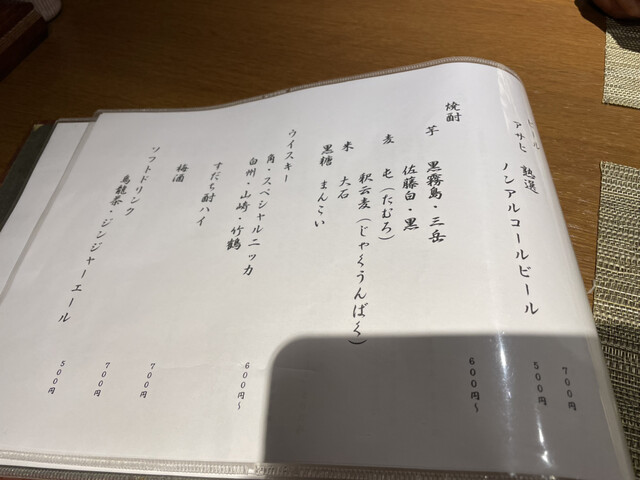 ビール
アサヒ 熟選 700円
ノンアルコールビール 500円
焼酎 600円～
芋 黒霧島・三岳
佐藤白・黒
麦 屯(たむろ)
釈云麦(じゃくうんばく)
米 大石
黒糖 まんこい
ウイスキー 600円～
角・スペシャルニッカ
白州・山崎・竹鶴
すだち酎ハイ 700円
梅酒 700円
ソフトドリンク 500円
烏龍茶・ジンジャーエール